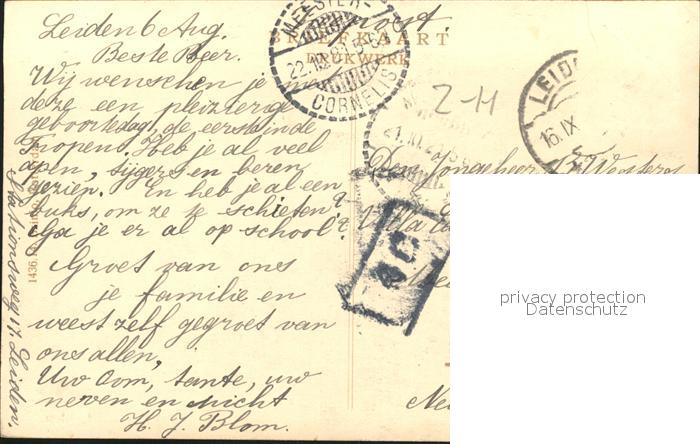 Leiden 6 Aug.
Beste Beer.
Wij wenschen je met
deze een pleizierige
geboortedag, de eerste in de
Tropens. Heb je al veel
apen, tijgers en beren
gezien. En heb je al een
buks, om ze te schieten?
Ga je er al op school?
Groet van ons
je familie en
weest zelf gegroet van
ons allen,
Uw Oom, tante, uw
neven en nicht
H. J. Blom.
Stationsweg 17 Leiden.
1436.
BRIEFKAART
DRUKWERK
MEESTER-
CORNELIS
2-11
LEID
16.IX
Den Jongeheer
Villa
privacy protection
Datenschutz